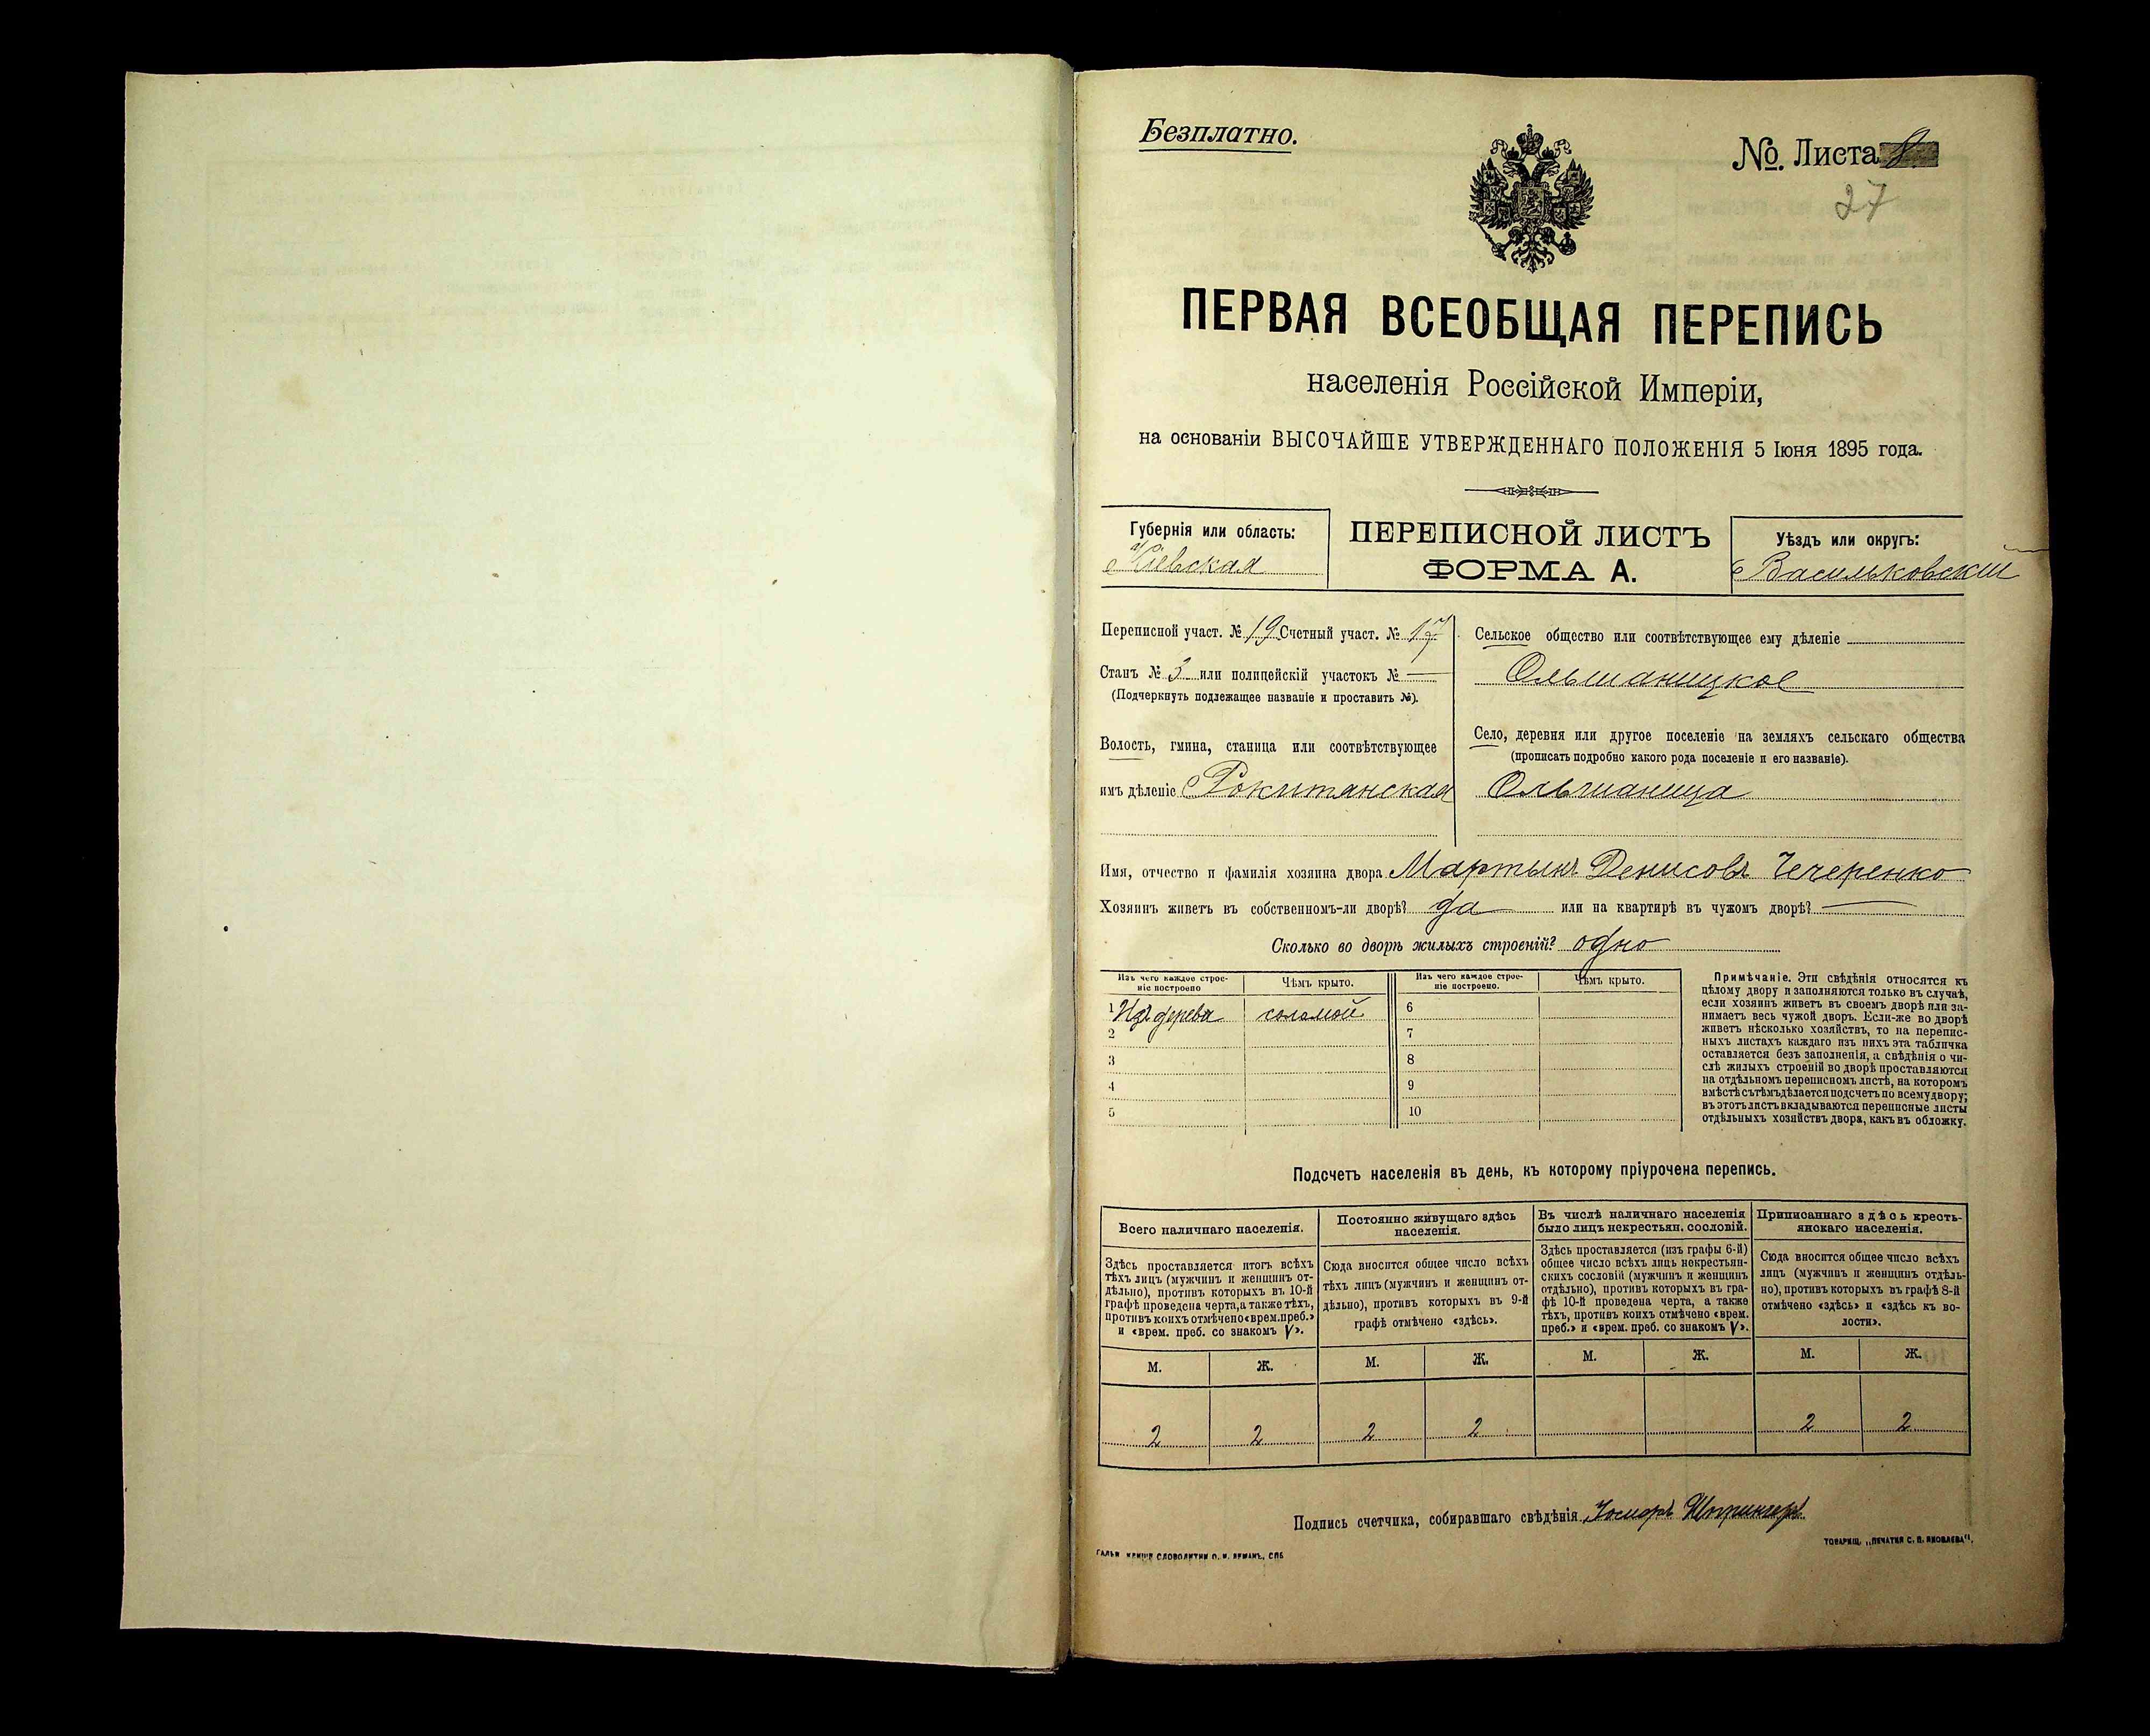 Безплатно.
№ Листа 8
27
ПЕРВАЯ ВСЕОБЩАЯ ПЕРЕПИСЬ
населенія Россійской Имперіи,
на основаніи ВЫСОЧАЙШЕ УТВЕРЖДЕННАГО ПОЛОЖЕНІЯ 5 Іюня 1895 года.
Губернія или область:
Кіевская
ПЕРЕПИСНОЙ ЛИСТЪ
ФОРМА А.
Уѣздъ или округъ:
Васильковскій
Переписной участ. № 19 Счетный участ. № 17
Станъ № 3 или полицейскій участокъ № —
(Подчеркнуть подлежащее названіе и проставить №).
Волость, гмина, станица или соотвѣтствующее
имъ дѣленіе Рокитанская
Сельское общество или соотвѣтствующее ему дѣленіе
Ольшаницкое
Село, деревня или другое поселеніе на земляхъ сельскаго общества
(прописать подробно какого рода поселеніе и его названіе).
Ольшаница
Имя, отчество и фамилія хозяина двора Мартынъ Денисовъ Чечеренко
Хозяинъ живетъ въ собственномъ-ли дворѣ? да или на квартирѣ въ чужомъ дворѣ? —
Сколько во дворѣ жилыхъ строеній? одно
Изъ чего каждое строе-
ніе построено
Чѣмъ крыто.
Изъ чего каждое строе-
ніе построено.
Чѣмъ крыто.
1 Изъ дерева соломой 6
2 7
3 8
4 9
5 10
Примѣчаніе. Эти свѣдѣнія относятся къ
цѣлому двору и заполняются только въ случаѣ,
если хозяинъ живетъ въ своемъ дворѣ или за-
нимаетъ весь чужой дворъ. Если-же во дворѣ
живетъ нѣсколько хозяйствъ, то на перепис-
ныхъ листахъ каждаго изъ нихъ эта табличка
оставляется безъ заполненія, а свѣдѣнія о чи-
слѣ жилыхъ строеній во дворѣ проставляются
на отдѣльномъ переписномъ листѣ, на которомъ
вмѣстѣ съ тѣмъ дѣлается подсчетъ по всему двору;
въ этотъ листъ вкладываются переписные листы
отдѣльныхъ хозяйствъ двора, какъ въ обложку.
Подсчетъ населенія въ день, къ которому пріурочена перепись.
Всего наличнаго населенія.
Здѣсь проставляется итогъ всѣхъ
тѣхъ лицъ (мужчинъ и женщинъ от-
дѣльно), противъ которыхъ въ 10-й
графѣ проведена черта, а также тѣхъ,
противъ коихъ отмѣчено «врем. преб.»
и «врем. преб. со знакомъ V».
Постоянно живущаго здѣсь
населенія.
Сюда вносится общее число всѣхъ
тѣхъ лицъ (мужчинъ и женщинъ от-
дѣльно), противъ которыхъ въ 9-й
графѣ отмѣчено «здѣсь».
Въ числѣ наличнаго населенія
было лицъ некрестьян. сословій.
Здѣсь проставляется (изъ графы 6-й)
общее число всѣхъ лицъ некрестьян-
скихъ сословій (мужчинъ и женщинъ
отдѣльно), противъ которыхъ въ гра-
фѣ 10-й проведена черта, а также
тѣхъ, противъ коихъ отмѣчено «врем.
преб.» и «врем. преб. со знакомъ V».
Приписаннаго здѣсь кресть-
янскаго населенія.
Сюда вносится общее число всѣхъ
лицъ (мужчинъ и женщинъ отдѣль-
но), противъ которыхъ въ графѣ 8-й
отмѣчено «здѣсь» и «здѣсь къ во-
лости».
М. Ж. М. Ж. М. Ж. М. Ж.
2 2 2 2 2 2
Подпись счетчика, собиравшаго свѣдѣнія
ТОВАРИЩ. „ПЕЧАТНЯ С. П. ЯКОВЛЕВА".